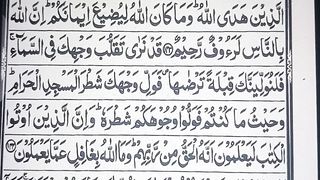 الَّذِيْنَ هَدَى اللّٰهُ ؕ وَمَا كَانَ اللّٰهُ لِيُضِيْعَ اِيْمَانَكُمْ ؕ اِنَّ اللّٰهَ
بِالنَّاسِ لَرَءُوْفٌ رَّحِيْمٌ ۝ قَدْ نَرٰى تَقَلُّبَ وَجْهِكَ فِى السَّمَآءِ ۚ
فَلَنُوَلِّيَنَّكَ قِبْلَةً تَرْضٰىهَا ۪ فَوَلِّ وَجْهَكَ شَطْرَ الْمَسْجِدِ الْحَرَامِ ؕ
وَحَيْثُ مَا كُنْتُمْ فَوَلُّوْا وُجُوْهَكُمْ شَطْرَهٗ ؕ وَاِنَّ الَّذِيْنَ اُوْتُوا
الْكِتٰبَ لَيَعْلَمُوْنَ اَنَّهُ الْحَقُّ مِنْ رَّبِّهِمْ ؕ وَمَا اللّٰهُ بِغَافِلٍ عَمَّا يَعْمَلُوْنَ ۝